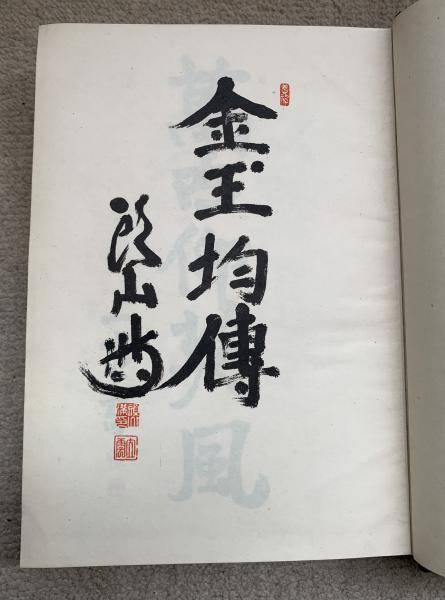 金玉均傳
頭山満